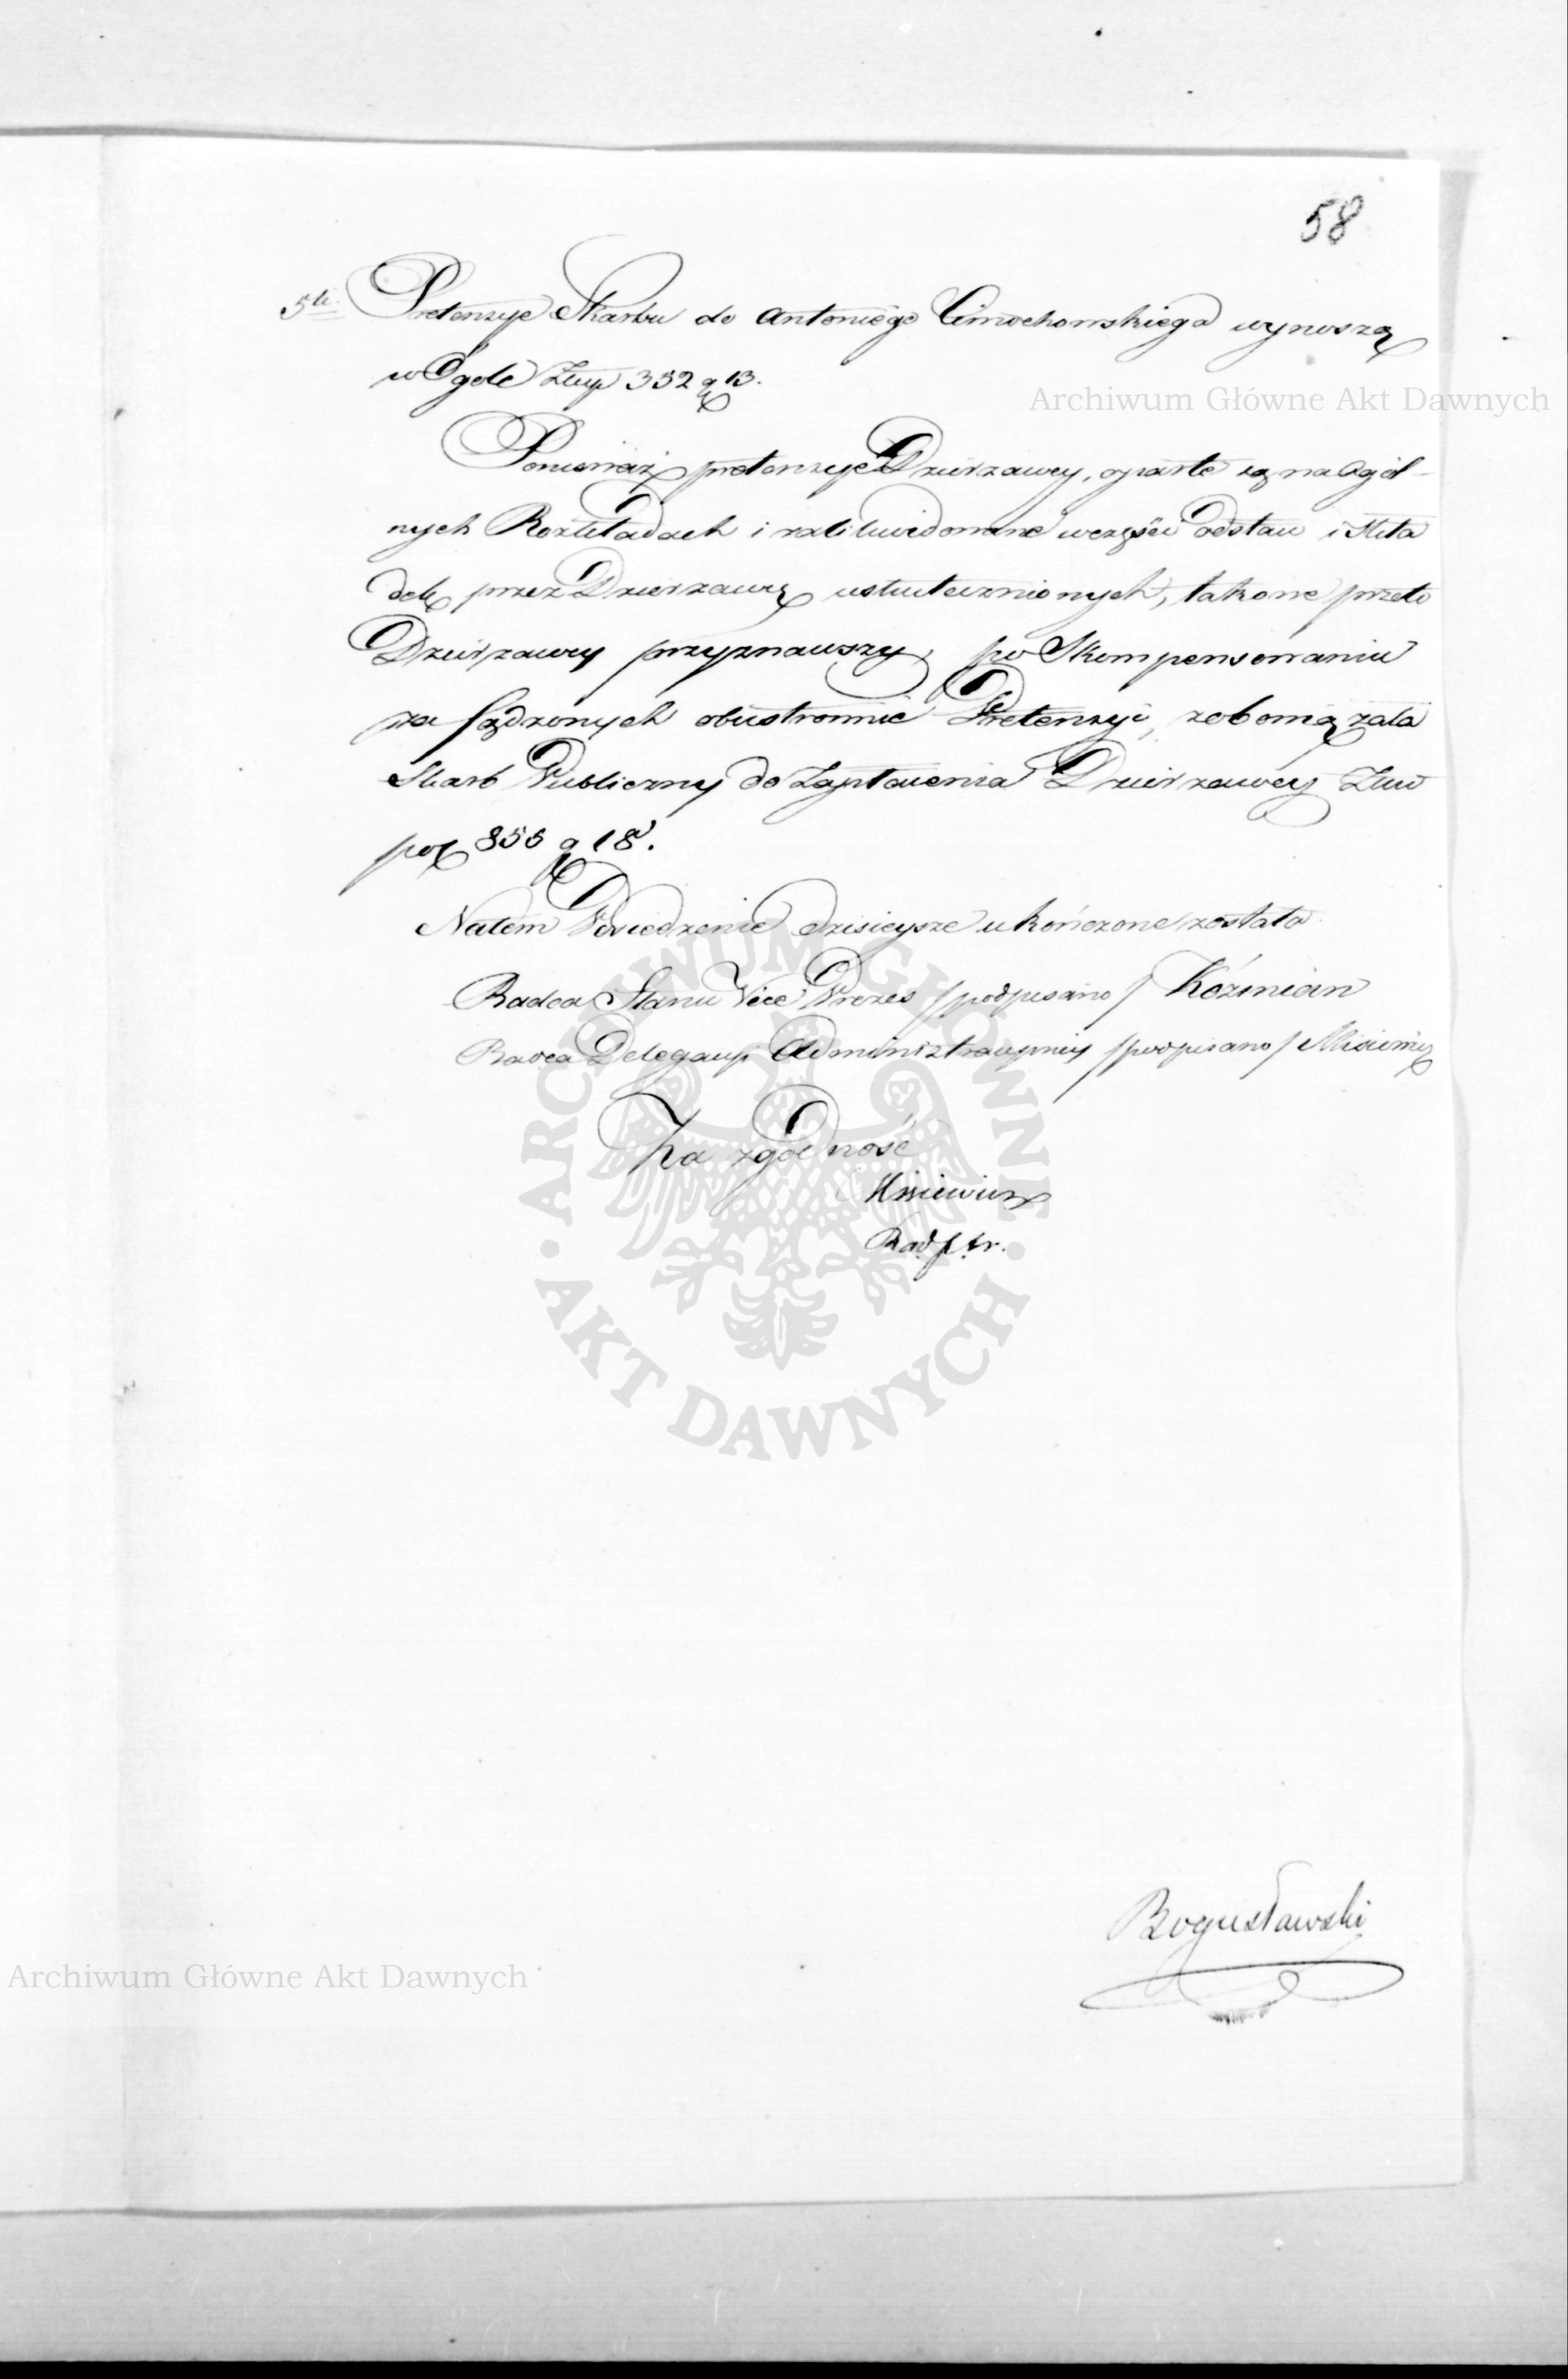 58
5te Pretensye Skarbu do Antoniego Cimochowskiego wynoszą
w Ogóle Złłp 352 gr 13.
Archiwum Główne Akt Dawnych
Ponieważ pretensye Dzierzawcy, oparte są na Ogól-
nych Rozkładach i zalikwidowane w części odstaw i Skła
dek przez Dzierzawcę uskutecznionych, takowe przeto
Dzierzawcy przyznawszy, po Skompensowaniu
za sądzonych obustronnie Pretensyi, zobowiązała
Skarb Publiczny do Zapłacenia Dzierzawcy Zło
pol 855 gr 18.
Natem Posiedzenie dzisieysze ukończone zostało
Radca Stanu Vice Prezes /podpisano/ Koźmian
Radca Delegacyi Administracyiney /podpisano/ Misiewicz
Za zgodność
Misiewicz
ARCHIWUM GŁÓWNE · AKT DAWNYCH ·
Bogusławski
Archiwum Główne Akt Dawnych